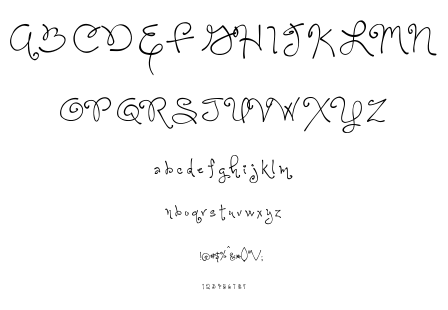 ABCDEFGHIJKLMN
OPQRSTUVWXYZ
abcdefghijklm
nboqrstuvwxyz